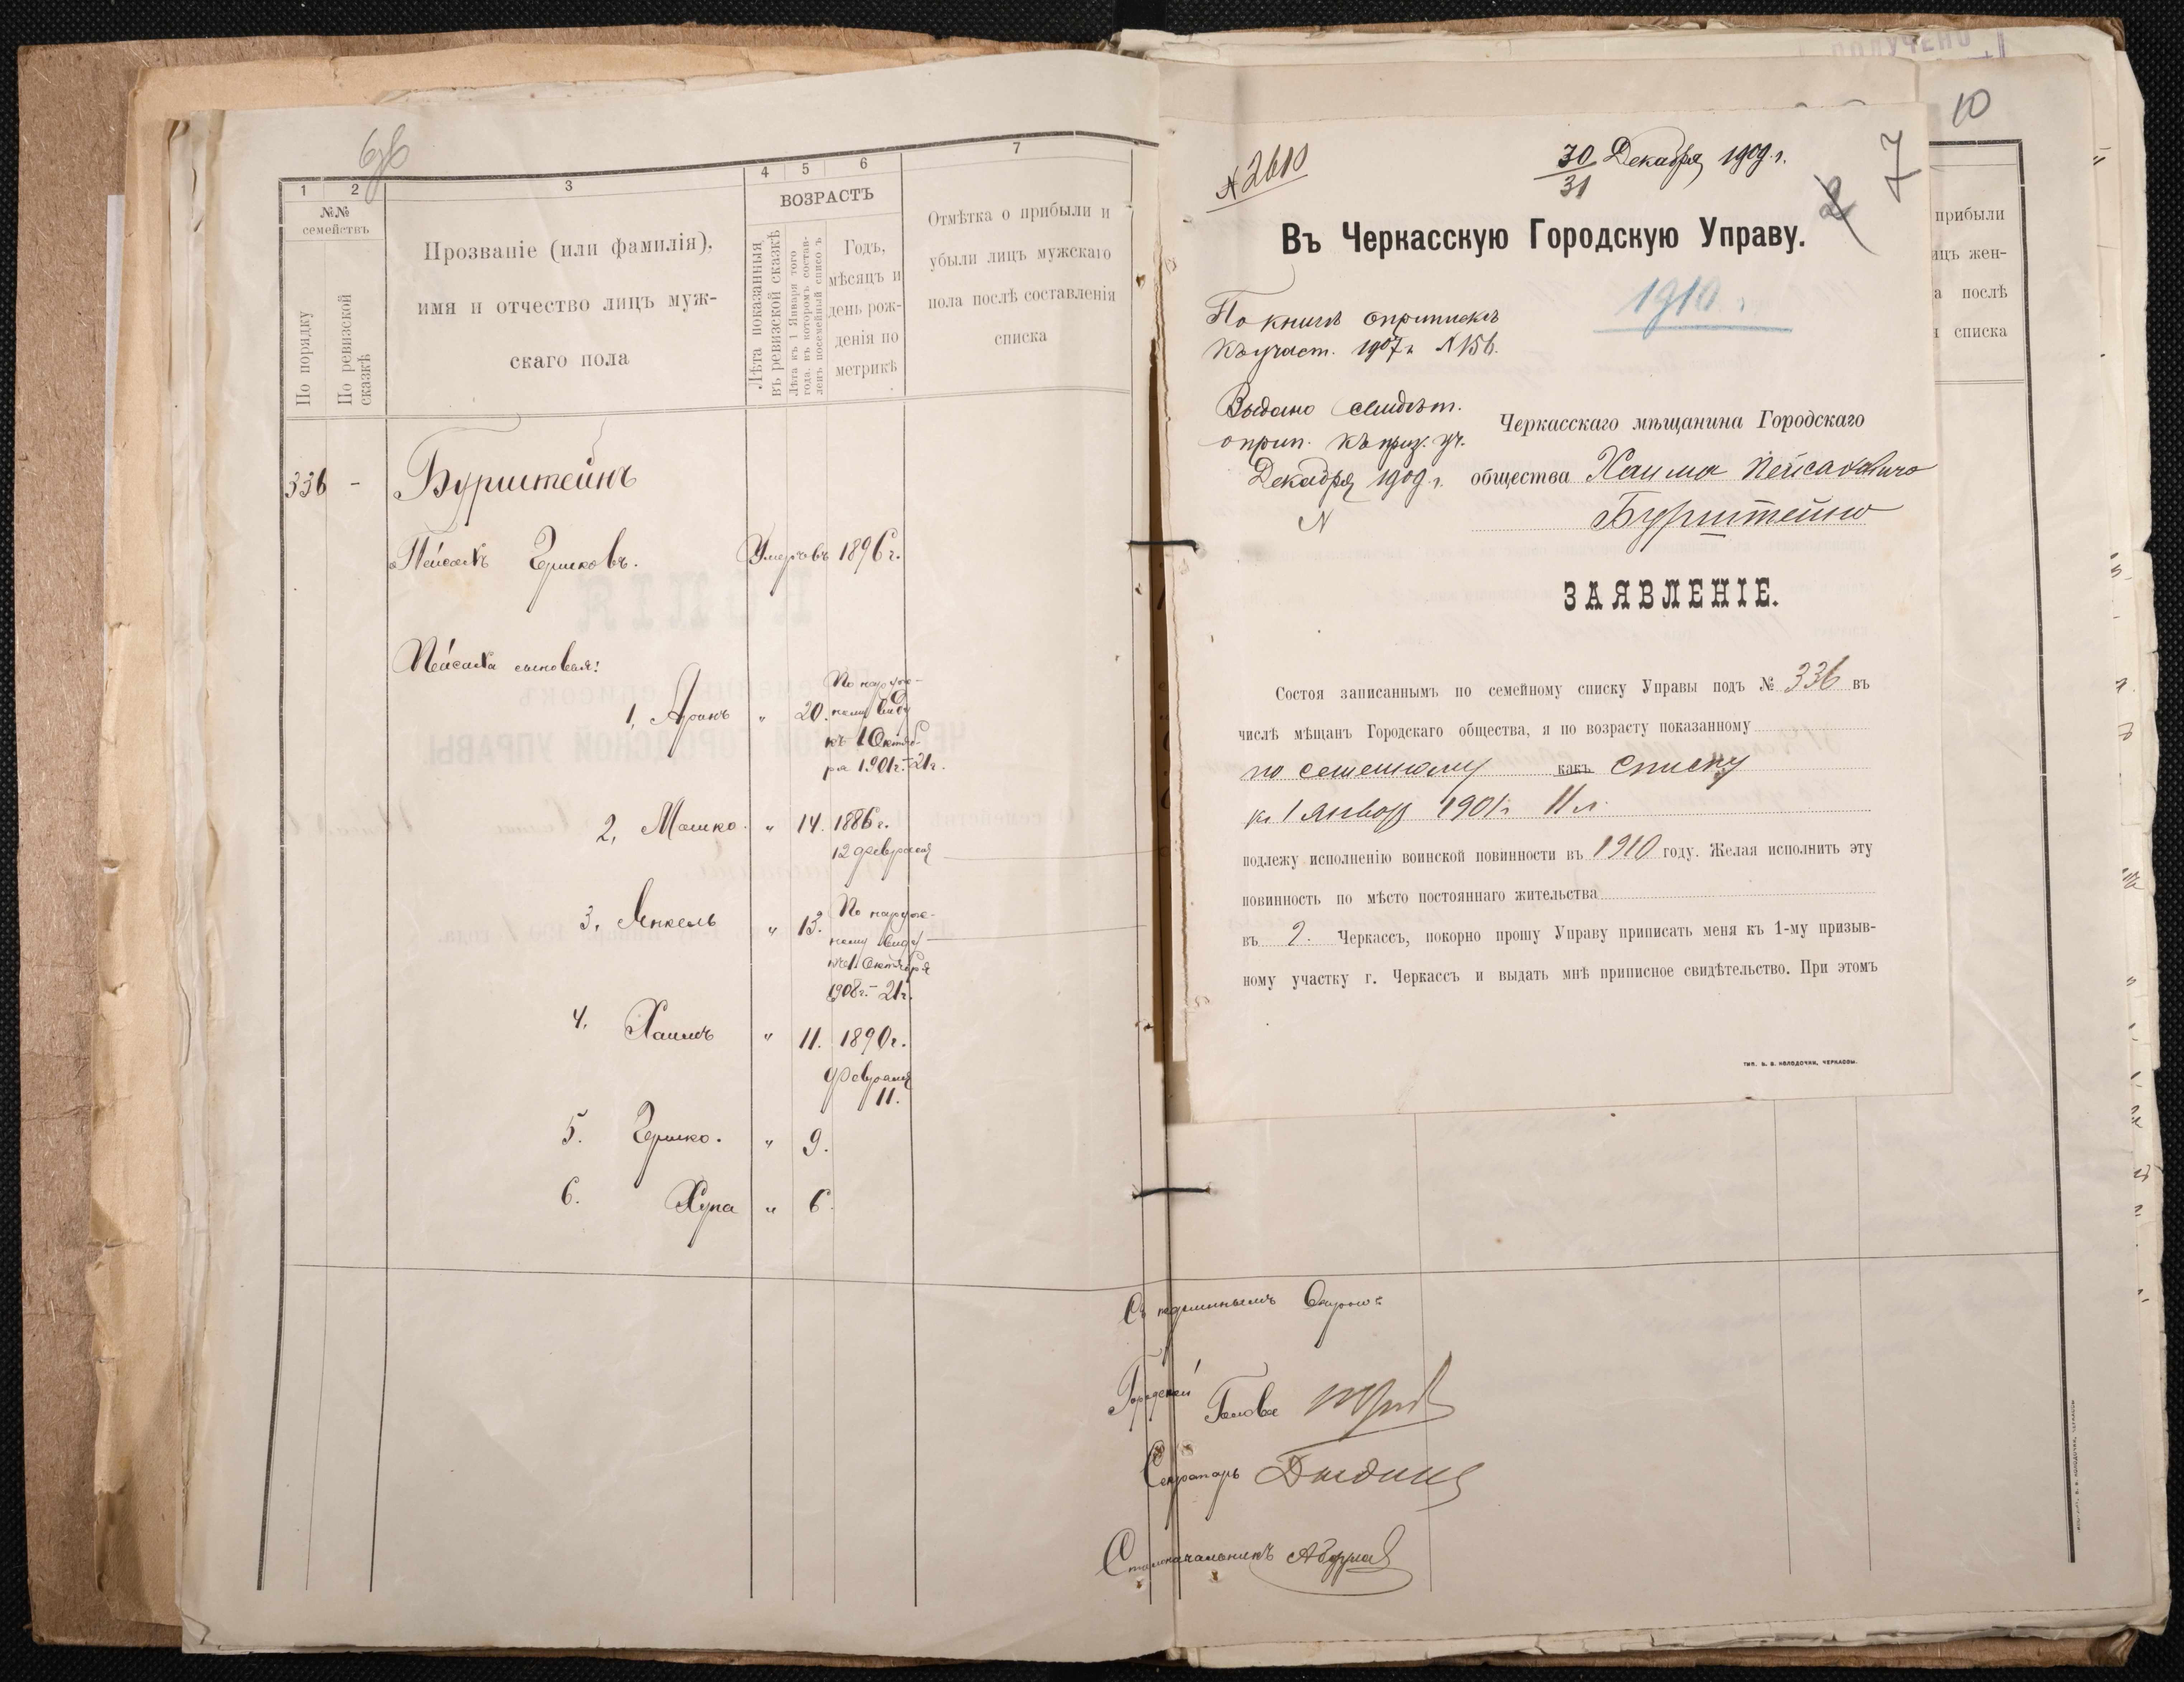 1
2
3
4
5
6
7
№№
семействъ
По порядку
По ревизской сказкѣ
Прозваніе (или фамилія),
имя и отчество лицъ муж-
скаго пола
ВОЗРАСТЪ
Лѣта показанныя
въ ревизской сказкѣ
Лѣта къ 1 Января того
года, въ которомъ состав-
ленъ посемейный списо ъ
Годъ,
мѣсяцъ и
день рож-
денія по
метрикѣ
Отмѣтка о прибыли и
убыли лицъ мужскаго
пола послѣ составленія
списка
336 - Бурштейнъ
Пейсахъ Гершковъ. Умеръ въ 1896 г.
Пейсаха сыновья:
1, Аронъ " 20. По наруж-
ному виду
къ 1 Октяб-
ря 1901г. - 21г.
2, Мошко. " 14. 1886 г.
12 февраля
3, Янкель " 13. По наруж-
ному виду
къ 1 Октября
1908г. - 21г.
4. Хаимъ " 11. 1890г.
февраля
11.
5. Гершко. " 9.
6. Хуна " 6.
№ 2610
30 Декабря 1909 г.
31
7
10
Въ Черкасскую Городскую Управу.
1910 г.
По книгѣ о припискѣ
къ участ. 1907 г. № 156.
Выдано свидѣт.
о прип. къ приз. уч.
Декабря 1909 г.
N
Черкасскаго мѣщанина Городскаго
общества Хаима Пейсаховича
Бурштейна
ЗАЯВЛЕНІЕ.
Состоя записаннымъ по семейному списку Управы подъ № 336 въ
числѣ мѣщанъ Городскаго общества, я по возрасту показанному
по семейному какъ списку
къ 1 января 1901 г. 11 л.
подлежу исполненію воинской повинности въ 1910 году. Желая исполнить эту
повинность по мѣсто постояннаго жительства
въ г. Черкассъ, покорно прошу Управу приписать меня къ 1-му призыв-
ному участку г. Черкассъ и выдать мнѣ приписное свидѣтельство. При этомъ
ТИП. В. В. КОЛОДОЧКИ, ЧЕРКАССЫ.
ПОЛУЧЕНО
прибыли
ицъ жен-
а послѣ
списка
Съ подлиннымъ вѣрно:
Городской Голова
Секретарь
Столоначальникъ